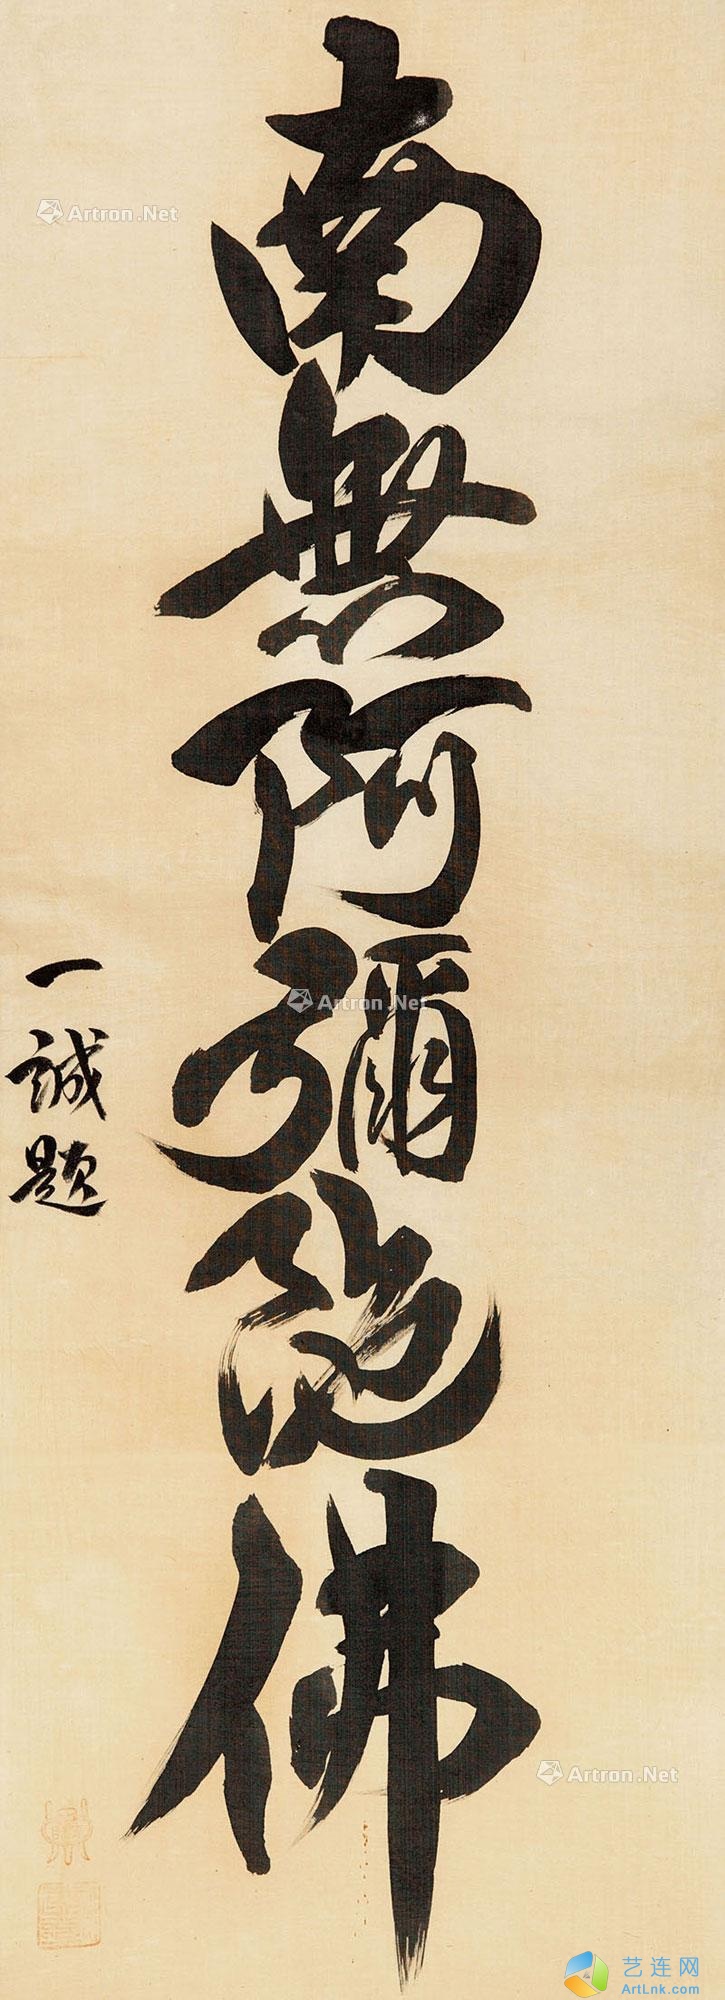 南無阿彌陀佛
一誠题
Artron.Net
Artron.Net
Artron.Net
艺连网
ArtLnk.com